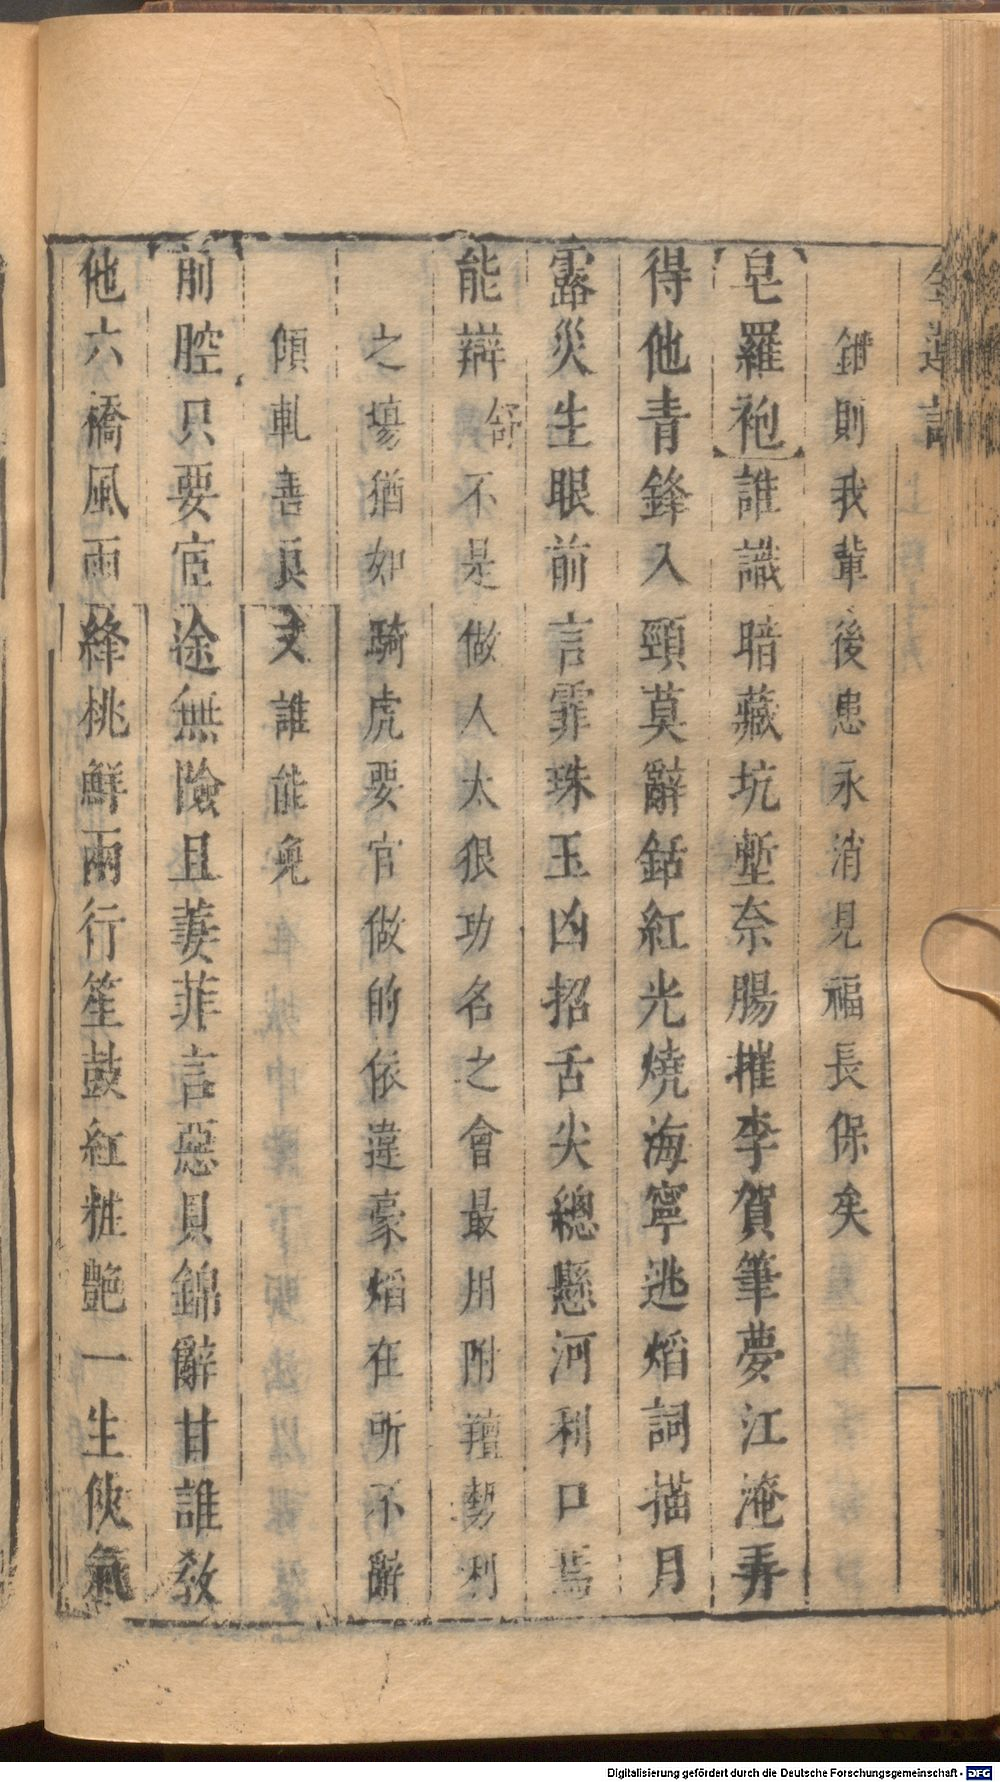 金蓮記
鉗則我輩後患永消見福長保矣
皂羅袍誰識暗藏坑塹奈腸摧李賀筆夢江淹弄
得他青鋒入頸莫辭銛紅光燒海寧逃焰詞描月
露災生眼前言霏珠玉凶招舌尖總懸河利口焉
能辯舒不是做人太狠功名之會最用附羶勢利
之塲猶如騎虎要官做的依違豪焰在所不辭
傾軋善良又誰能免
前腔只要宦途無險且萋菲言惡貝錦辭甘誰教
他六橋風雨絳桃鮮兩行笙鼓紅粧艶一生俠氣
Digitalisierung gefördert durch die Deutsche Forschungsgemeinschaft - DFG